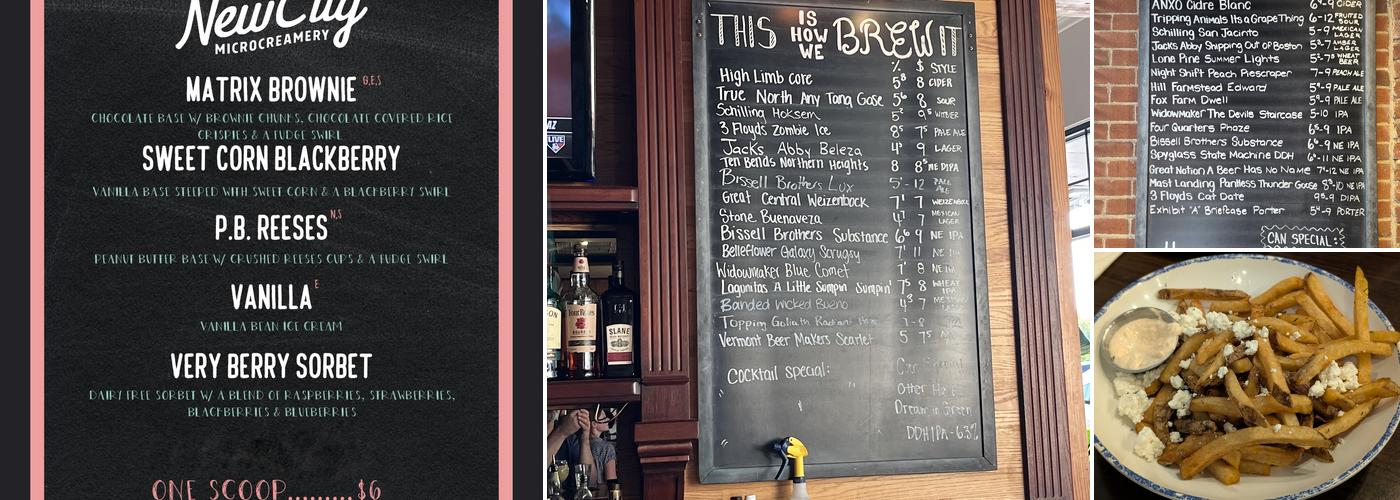 New City
MICROCREAMERY
MATRIX BROWNIE G,E,S
CHOCOLATE BASE W/ BROWNIE CHUNKS, CHOCOLATE COVERED RICE
CRISPIES & A FUDGE SWIRL
SWEET CORN BLACKBERRY
VANILLA BASE STEEPED WITH SWEET CORN & A BLACKBERRY SWIRL
P.B. REESES N,S
PEANUT BUTTER BASE W/ CRUSHED REESES CUPS & A FUDGE SWIRL
VANILLA E
VANILLA BEAN ICE CREAM
VERY BERRY SORBET
DAIRY FREE SORBET W/ A BLEND OF RASPBERRIES, STRAWBERRIES,
BLACKBERRIES & BLUEBERRIES
ONE SCOOP.........$6
LIVE
SLANE
THIS IS HOW WE BREW IT
% $ STYLE
High Limb core 5⁸ 8 CIDER
True North Any Tang Gose 5⁶ 8 SOUR
Schilling Hoksem 5² 9 WITBIER
3 Floyds Zombie Ice 8⁵ 7⁵ PALE ALE
Jacks Abby Beleza 4⁵ 9 LAGER
Ten Bends Northern Heights 8 8⁵ NE DIPA
Bissell Brothers Lux 5¹ - 12 PALE ALE
Great Central Weizenbock 7¹ 7 WEIZENBOCK
Stone Buenaveza 4⁷ 7 MEXICAN LAGER
Bissell Brothers Substance 6⁶ 9 NE IPA
Belleflower Galaxy Scrugsy 7¹ 11 NE IPA
Widowmaker Blue Comet 7¹ 8 NE IPA
Lagunitas A Little Sumpin Sumpin' 7⁵ 8 WHEAT IPA
Banded Wicked Bueno 4⁸ 7
Topping Goliath Radiant
Vermont Beer Makers Scarlet 5 7⁵
Cocktail special:
Other Half
Dream in Green
DDH IPA - 6.3%
ANXO Cidre Blanc 6⁹-9 CIDER
Tripping Animals Its a Grape Thing 6-12 FRUITED SOUR
Schilling San Jacinto 5-9 MEXICAN LAGER
Jacks Abby Shipping Out OF Boston 5³-7 AMBER LAGER
Lone Pine Summer Lights 5²-7⁵ WHEAT BEER
Night Shift Peach Piescraper 7-9 PEACH ALE
Hill Farmstead Edward 5²-9 PALE ALE
Fox Farm Dwell 5⁹-9 PALE ALE
Widowmaker The Devils Staircase 5-10 IPA
Four Quarters Phaze 6⁵-9 IPA
Bissell Brothers Substance 6⁶-9 NE IPA
Spyglass State Machine DDH 6⁵-11 NE IPA
Great Notion A Beer Has No Name 7⁵-12 NE IPA
Mast Landing Pantless Thunder Goose 8²-10 NE IPA
3 Floyds Cat Date 9⁵-9 DIPA
Exhibit "A" Briefcase Porter 5⁴-9 PORTER
CAN SPECIAL: